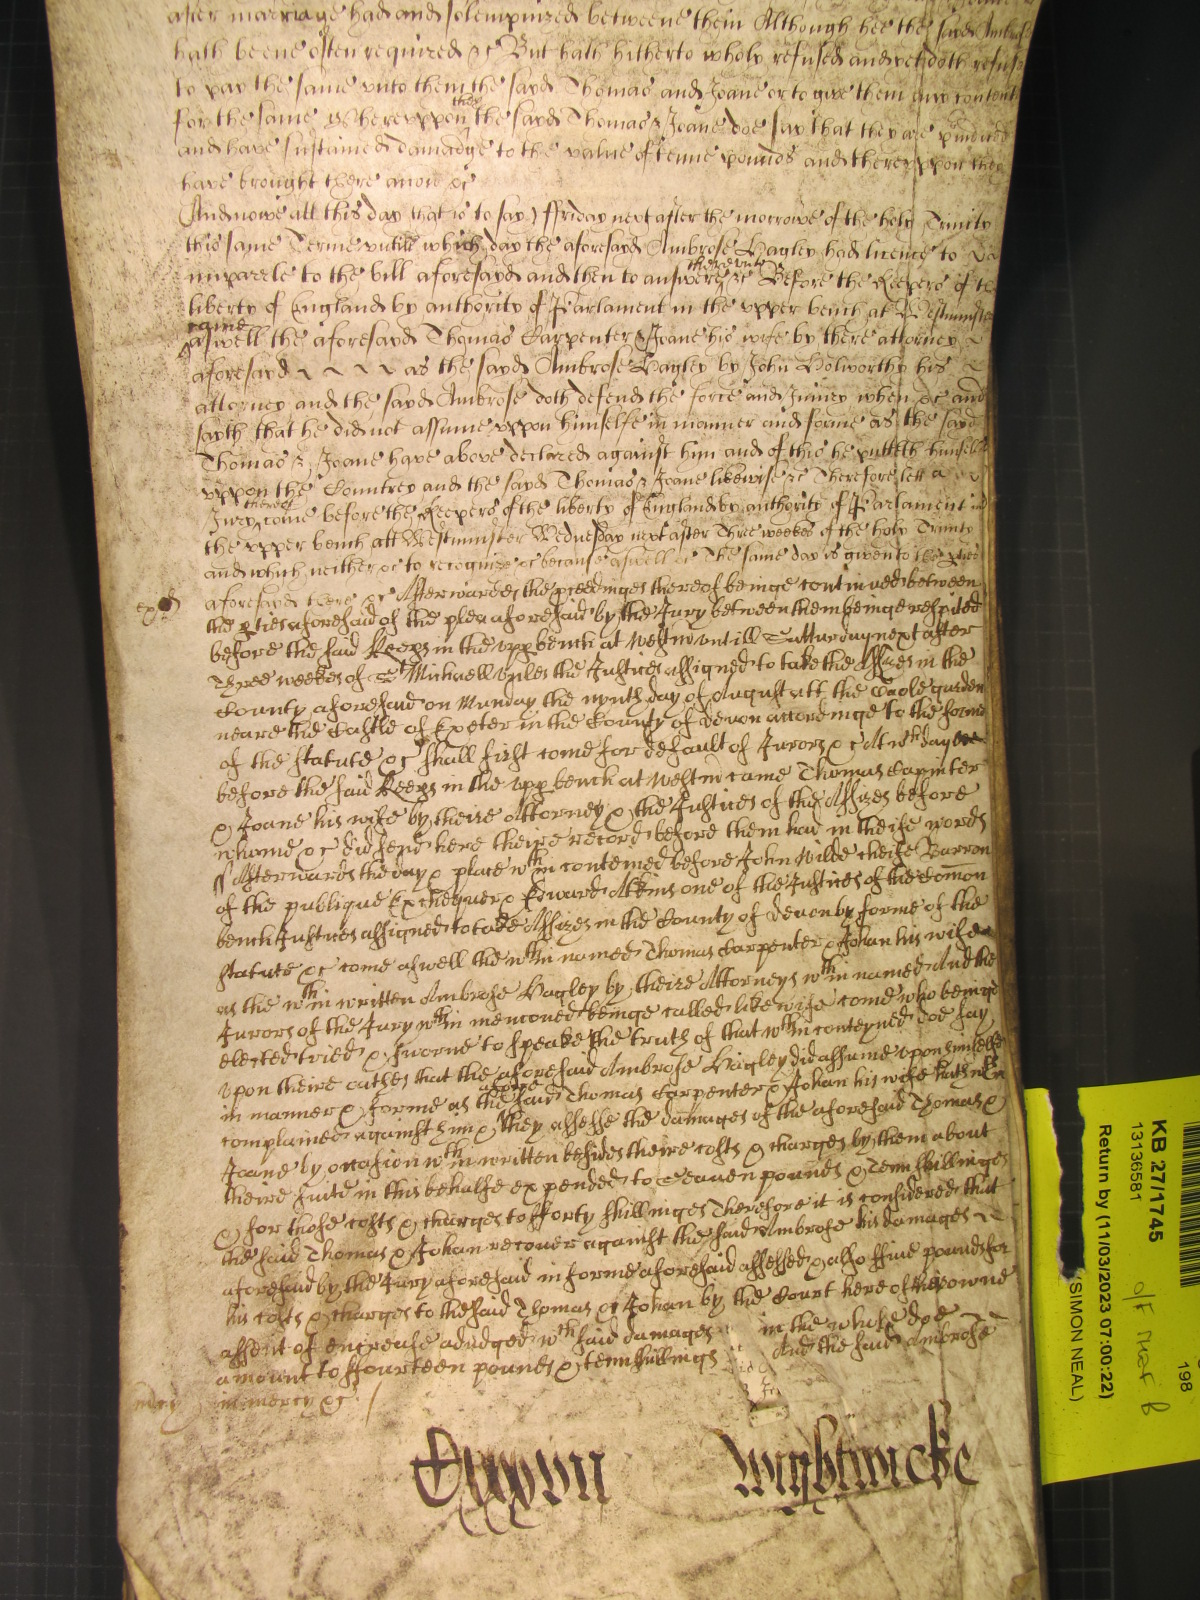 after marriage had and solempnized betweene them Although hee the sayd Ambrose
hath beene often required &c But hath hitherto wholy refused and yet doth refuse
to pay the same vnto them the sayd Thomas and Joane or to give them any content
for the same Wherevppon they the sayd Thomas & Joane doe say that they are
and have sustained damadge to the value of tenne pounds and therevppon they
have brought there accon &c
And nowe att this day that is to say ffriday next after the morrowe of the holy Trinity
this same Terme vntill which day the aforesayd Ambrose Hagley had licence to
imparle to the bill aforesayd and then to answere therevnto &c Before the Keepers of the
liberty of England by authority of Parlament in the vpper bench at Westminster
came aswell the aforesayd Thomas Carpenter & Joane his wife by there attorney
aforesayd as the sayd Ambrose Hagley by John Holworthy his
attorney and the sayd Ambrose doth defend the force and Injury when &c and
sayth that he did not assume vppon himselfe in manner and forme as the sayd
Thomas & Joane have above declared against him and of this he putteth himselfe
vppon the Countrey and the sayd Thomas & Joane likewise &c Therefore lett a
Jury thereof come before the Keepers of the liberty of England by authority of Parlament in
the vpper bench att Westminster Wednesday next after Three weekes of the holy Trinity
and which neither &c to recognize &c because aswell &c The same day is given to the
aforesayd there &c Afterwardes the pceedinges thereof beinge continued betweene
the pties aforesaid of the plea aforesaid by the Jury betweene them beinge respited
before the said Keeps in the vpp bench at Westm vntill Satturday next after
Three weekes of St Michaell vnles the Justices assigned to take the Assises in the
County aforesaid on Munday the nynth day of August att the Castle garden
neare the Castle of Exeter in the County of Devon accordinge to the forme
of the statute &c shall first come for default of Jurors &c At wch day
before the said Keeps in the vpp bench at Westm came Thomas Carpinter
& Joane his wife by theire Attorney & the Justices of the Assizes before
whome &c did send here theire record before them had in theise words
ss Afterwards the day & place wthin contemed before John Wilde cheife Barron
of the publique Exchequer & Edward Atkins one of the Justices of the Comon
bench Justices assigned to take Assizes in the County of Devon by forme of the
statute &c come aswell the wthin named Thomas Carpenter & Johan his wife
as the wthin written Ambrose Hagley by theire Attorneys wthin named And the
Jurors of the Jury wthin menconed beinge called likewise come who beinge
elected tried & sworne to speake the truth of that wthin conteyned doe say
vpon theire oathes that the aforesaid Ambrose Hagley did assume vpon himselfe
in manner & forme as the afore said Thomas Carpenter & Johan his wife hath wthin
complained against him & they assesse the damages of the aforesaid Thomas &
Joane by occasion wthin written besides theire costs & charges by them about
theire suite in this behalfe expended to Seaven pounds & Tenn shillinges
& for those costs & charges to fforty shillinges Therefore it is considered that
the said Thomas & Johan recouer against the said Ambrose his damages
aforesaid by the Jury aforesaid in forme aforesaid assessed & also ffiue pounds for
his costs & charges to the said Thomas & Johan by the Court here of theire owne
assent of encrease adiudged wch said damages in the whole doe
amount to ffourteen pounds & tenn shillings And the said Ambrose
in mercy &c
mcy
Wightwicke
KB 27/1745
13136581
Return by (11/03/2023 07:00:22)
(SIMON NEAL)
198